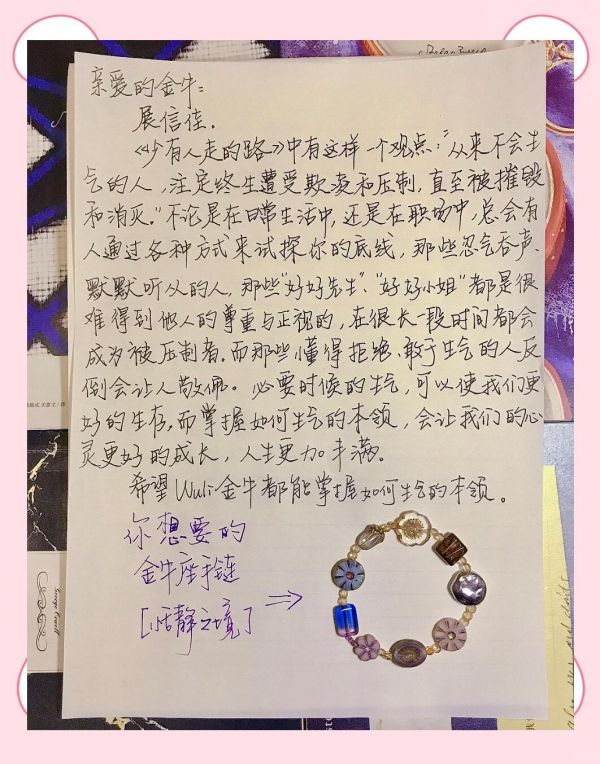 亲爱的金牛：
展信佳。
《少有人走的路》中有这样一个观点："从来不会生
气的人，注定终生遭受欺凌和压制，直至被摧毁
和消灭。"不论是在日常生活中，还是在职场中，总会有
人通过各种方式来试探你的底线，那些忍气吞声、
默默听从的人，那些"好好先生"、"好好小姐"都是很
难得到他人的尊重与正视的，在很长一段时间都会
成为被压制者，而那些懂得拒绝、敢于生气的人反
倒会让人敬佩。必要时候的生气，可以使我们更
好的生存，而掌握如何生气的本领，会让我们的心
灵更好的成长，人生更加丰满。
希望Wuli金牛都能掌握如何生气的本领。
你想要的
金牛座手链
[恬静之境]